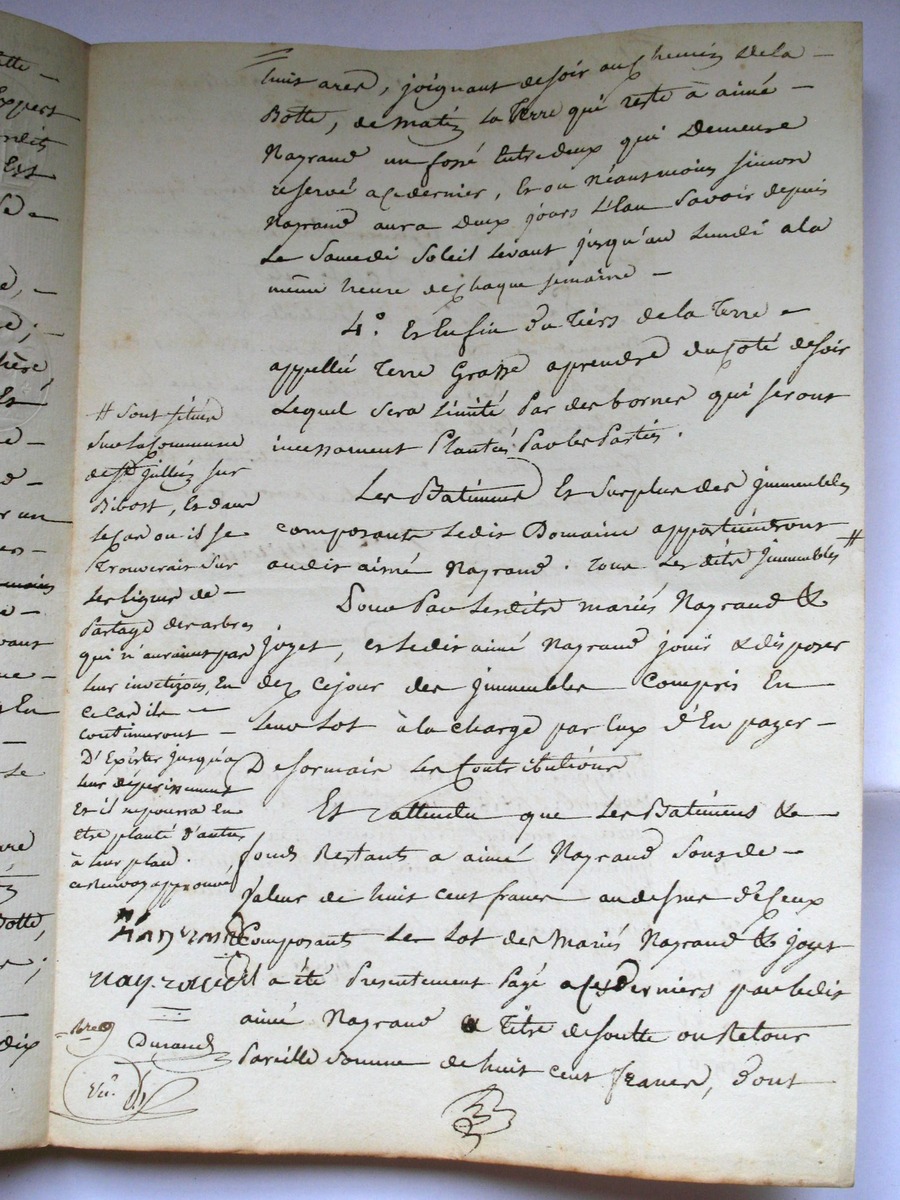 huit ares, joignant de soir au chemin de la
Botte, de matin la Terre qui reste à aimé
Nayrand un fossé Entredeux qui Demeure
reservé a ce dernier, Et ou Néantmoins simon
Nayrand aura Deux jours d'Eau savoir depuis
Le Samedi Soleil Levant jusqu'au Lundi a la
même heure de chaque semaine
4.º Et Enfin du Tiers de la Terre
appellée Terre Grasse aprendre du Côté de soir
Lequel sera Limité Par des bornes qui seront
incessament Plantées Par les Parties.
Les Batimens Et Surplus des jmmeubles
composants Ledit Domaine appartiendront
audit aimé Nayrand. Tous Les dits jmmeubles #
Pour Par Lesdits mariés Nayrand &
joyet, et Ledit aimé Nayrand jouir & disposer
dez ce jour des jmmeubles Compris En
Leur Lot à la charge par Eux d'En payer
Desormais Les Contributions
Et attendu que Les Batimens &
fonds Restants a aimé Nayrand Sont de
Valeur de huit cent francs au dessus de Ceux
Composants Le Lot des Mariés Nayrand & joyet
il a été Presentement Payé a ces Derniers par ledit
aimé Nayrand a Titre de soulte ou Retour
Pareille Somme de huit cent francs, dont
# Sont situés
sur La Commune
de St. jullien sur
Bibost, Et dans
Le Cas ou il se
trouverait Sur
Les lignes de
Partage des arbres
qui n'auraient pas
Leur invetizon, En
ce Cas ils
continueront
D'Exister jusqu'a
leur déperissement
Et il ne pourra En
Etre planté d'autres
à Leur place.
ce Renvoy approuvé
Nayrand
nayrand
Durand